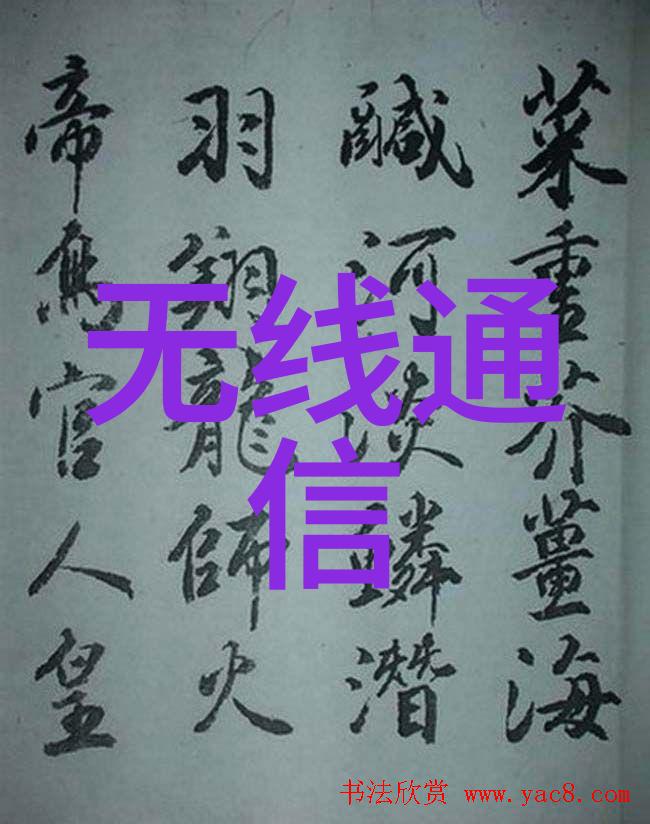 菜重芥薑海
鹹河淡鱗潛
羽翔龍師火
帝鳥官人皇
无线通
信
书法欣赏 www.yac8.com